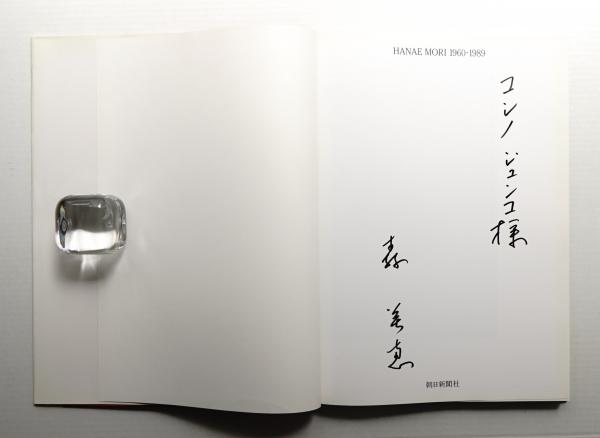 HANAE MORI 1960-1989
コシノ ジュンコ様
森 英恵
朝日新聞社